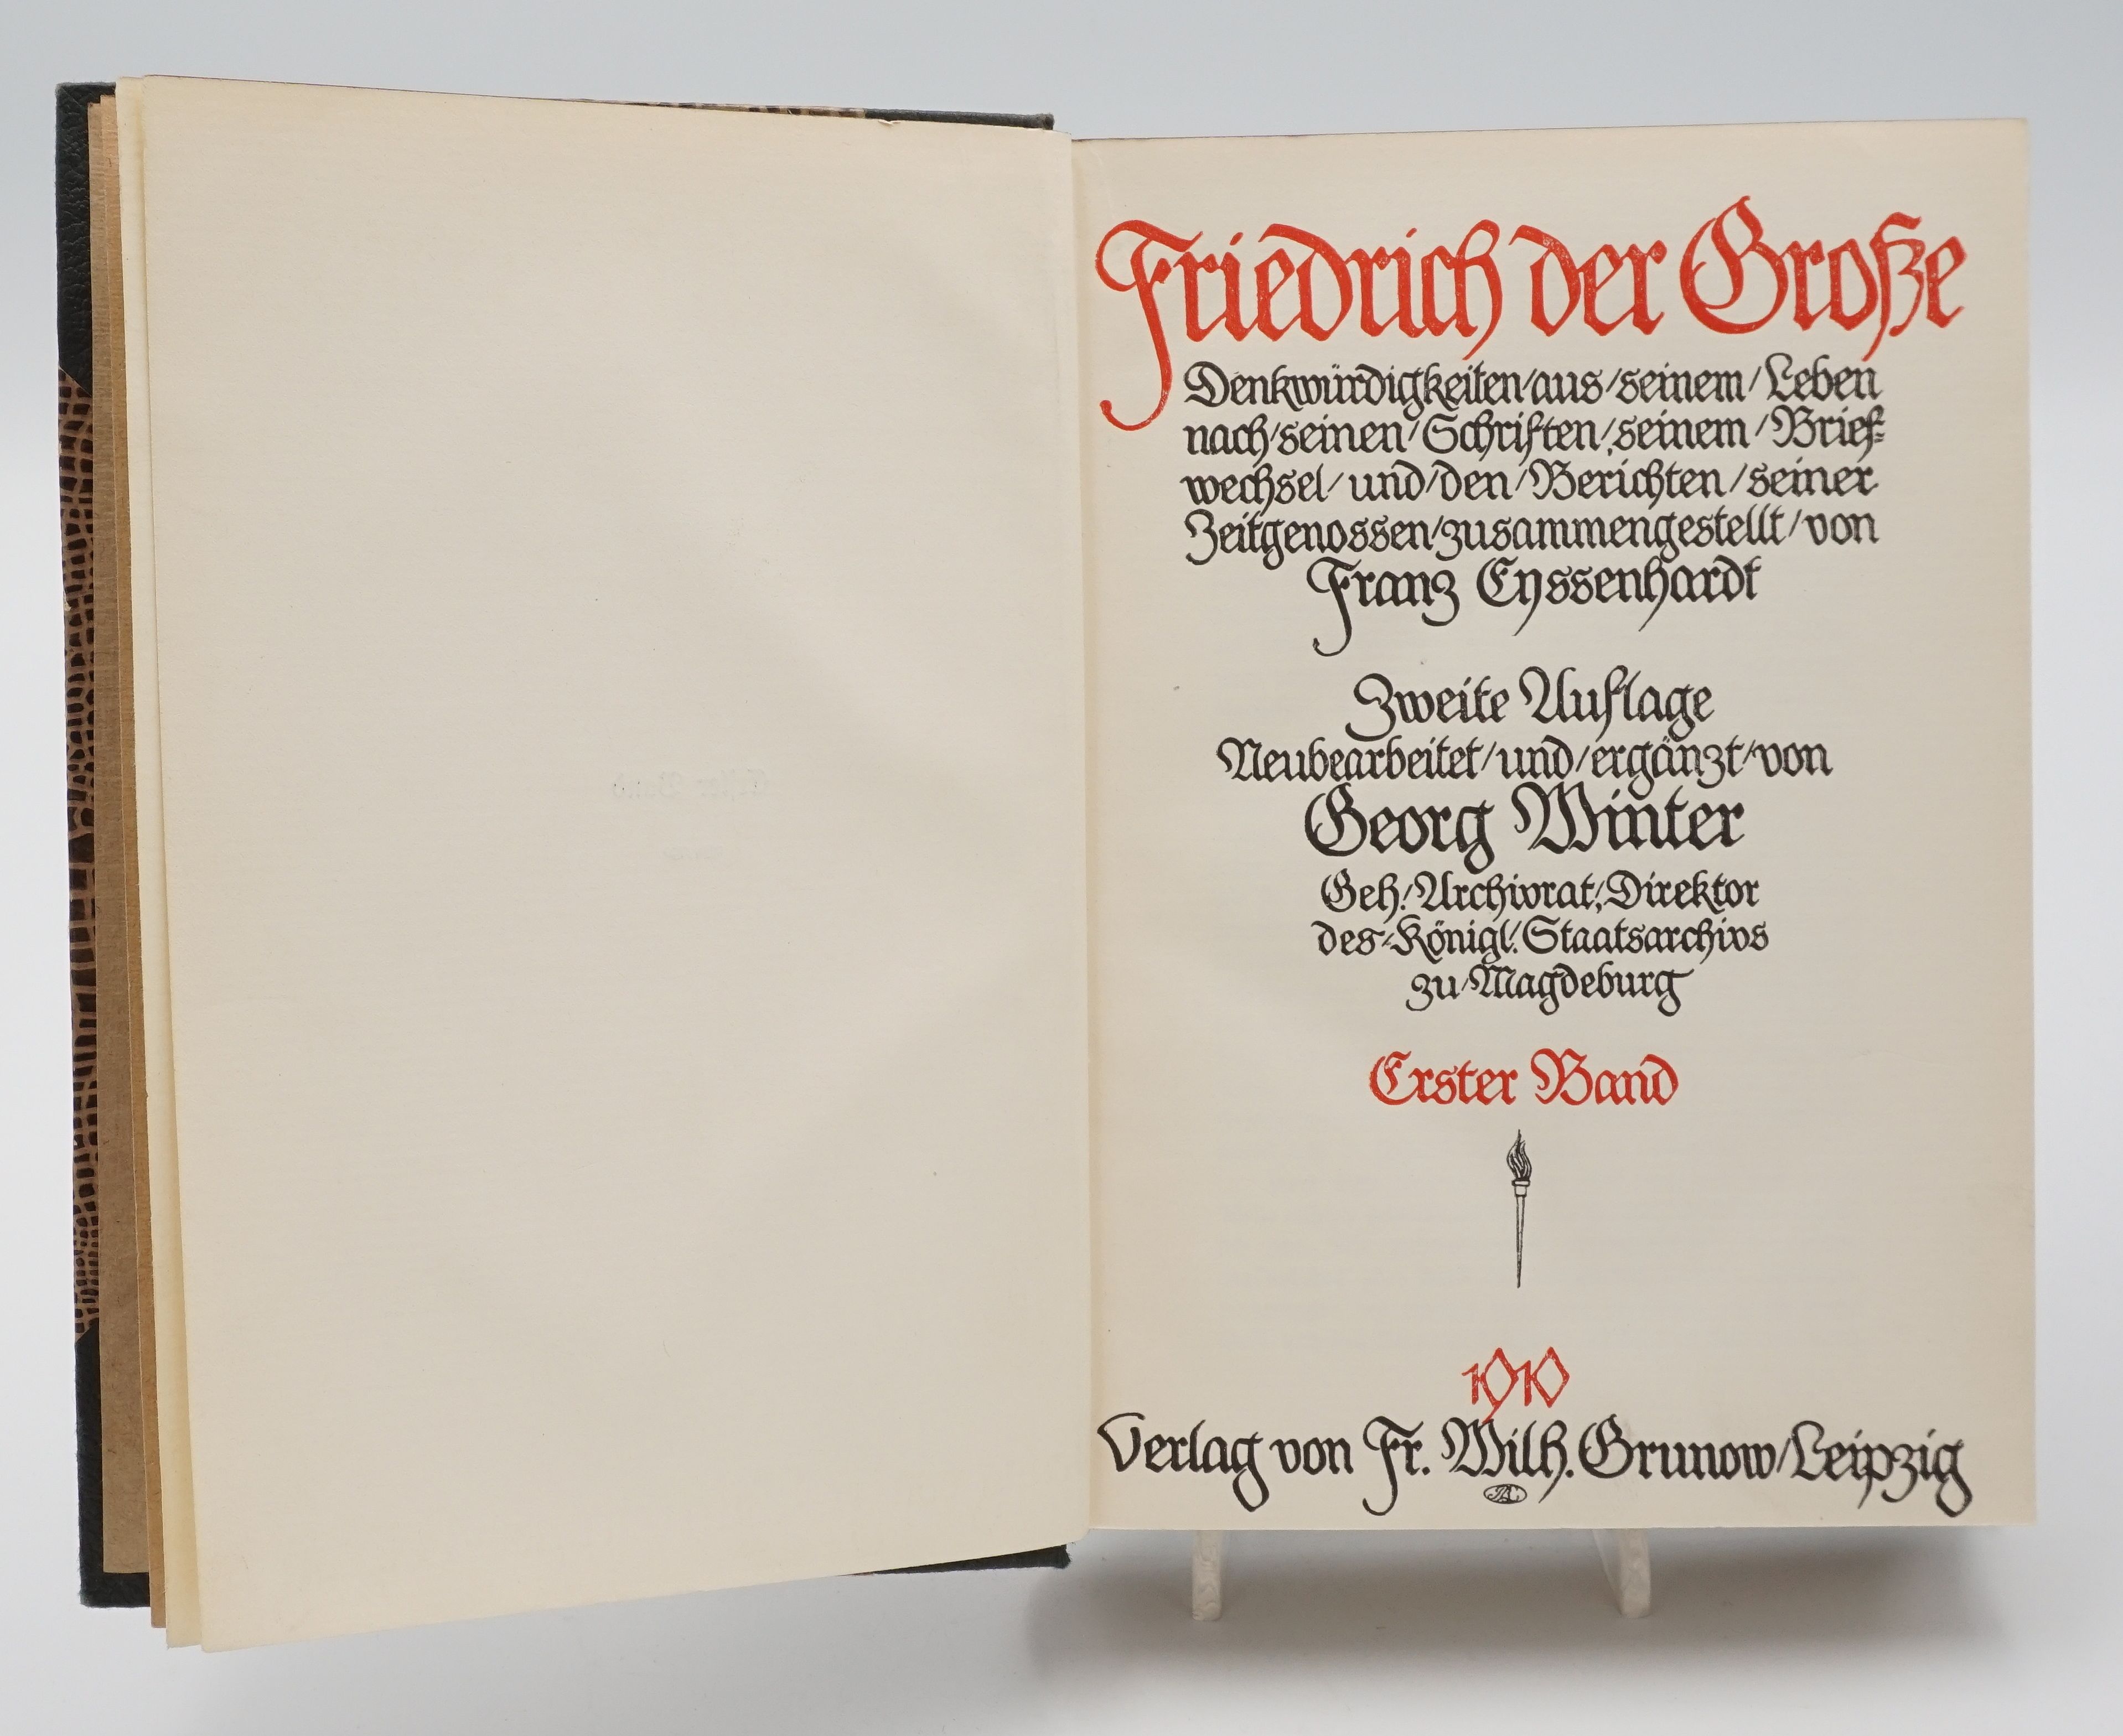 Friedrich der Große
Denkwürdigkeiten/aus/seinem/Leben
nach/seinen/Schriften/seinem/Brief⸗
wechsel/und/den/Berichten/seiner
Zeitgenossen/zusammengestellt/von
Franz Eyssenhardt
Zweite Auflage
Neubearbeitet/und/ergänzt/von
Georg Winter
Geh./Archivrat,/Direktor
des/Königl./Staatsarchivs
zu/Magdeburg
Erster Band
1910
Verlag von Fr. Wilh. Grunow/Leipzig